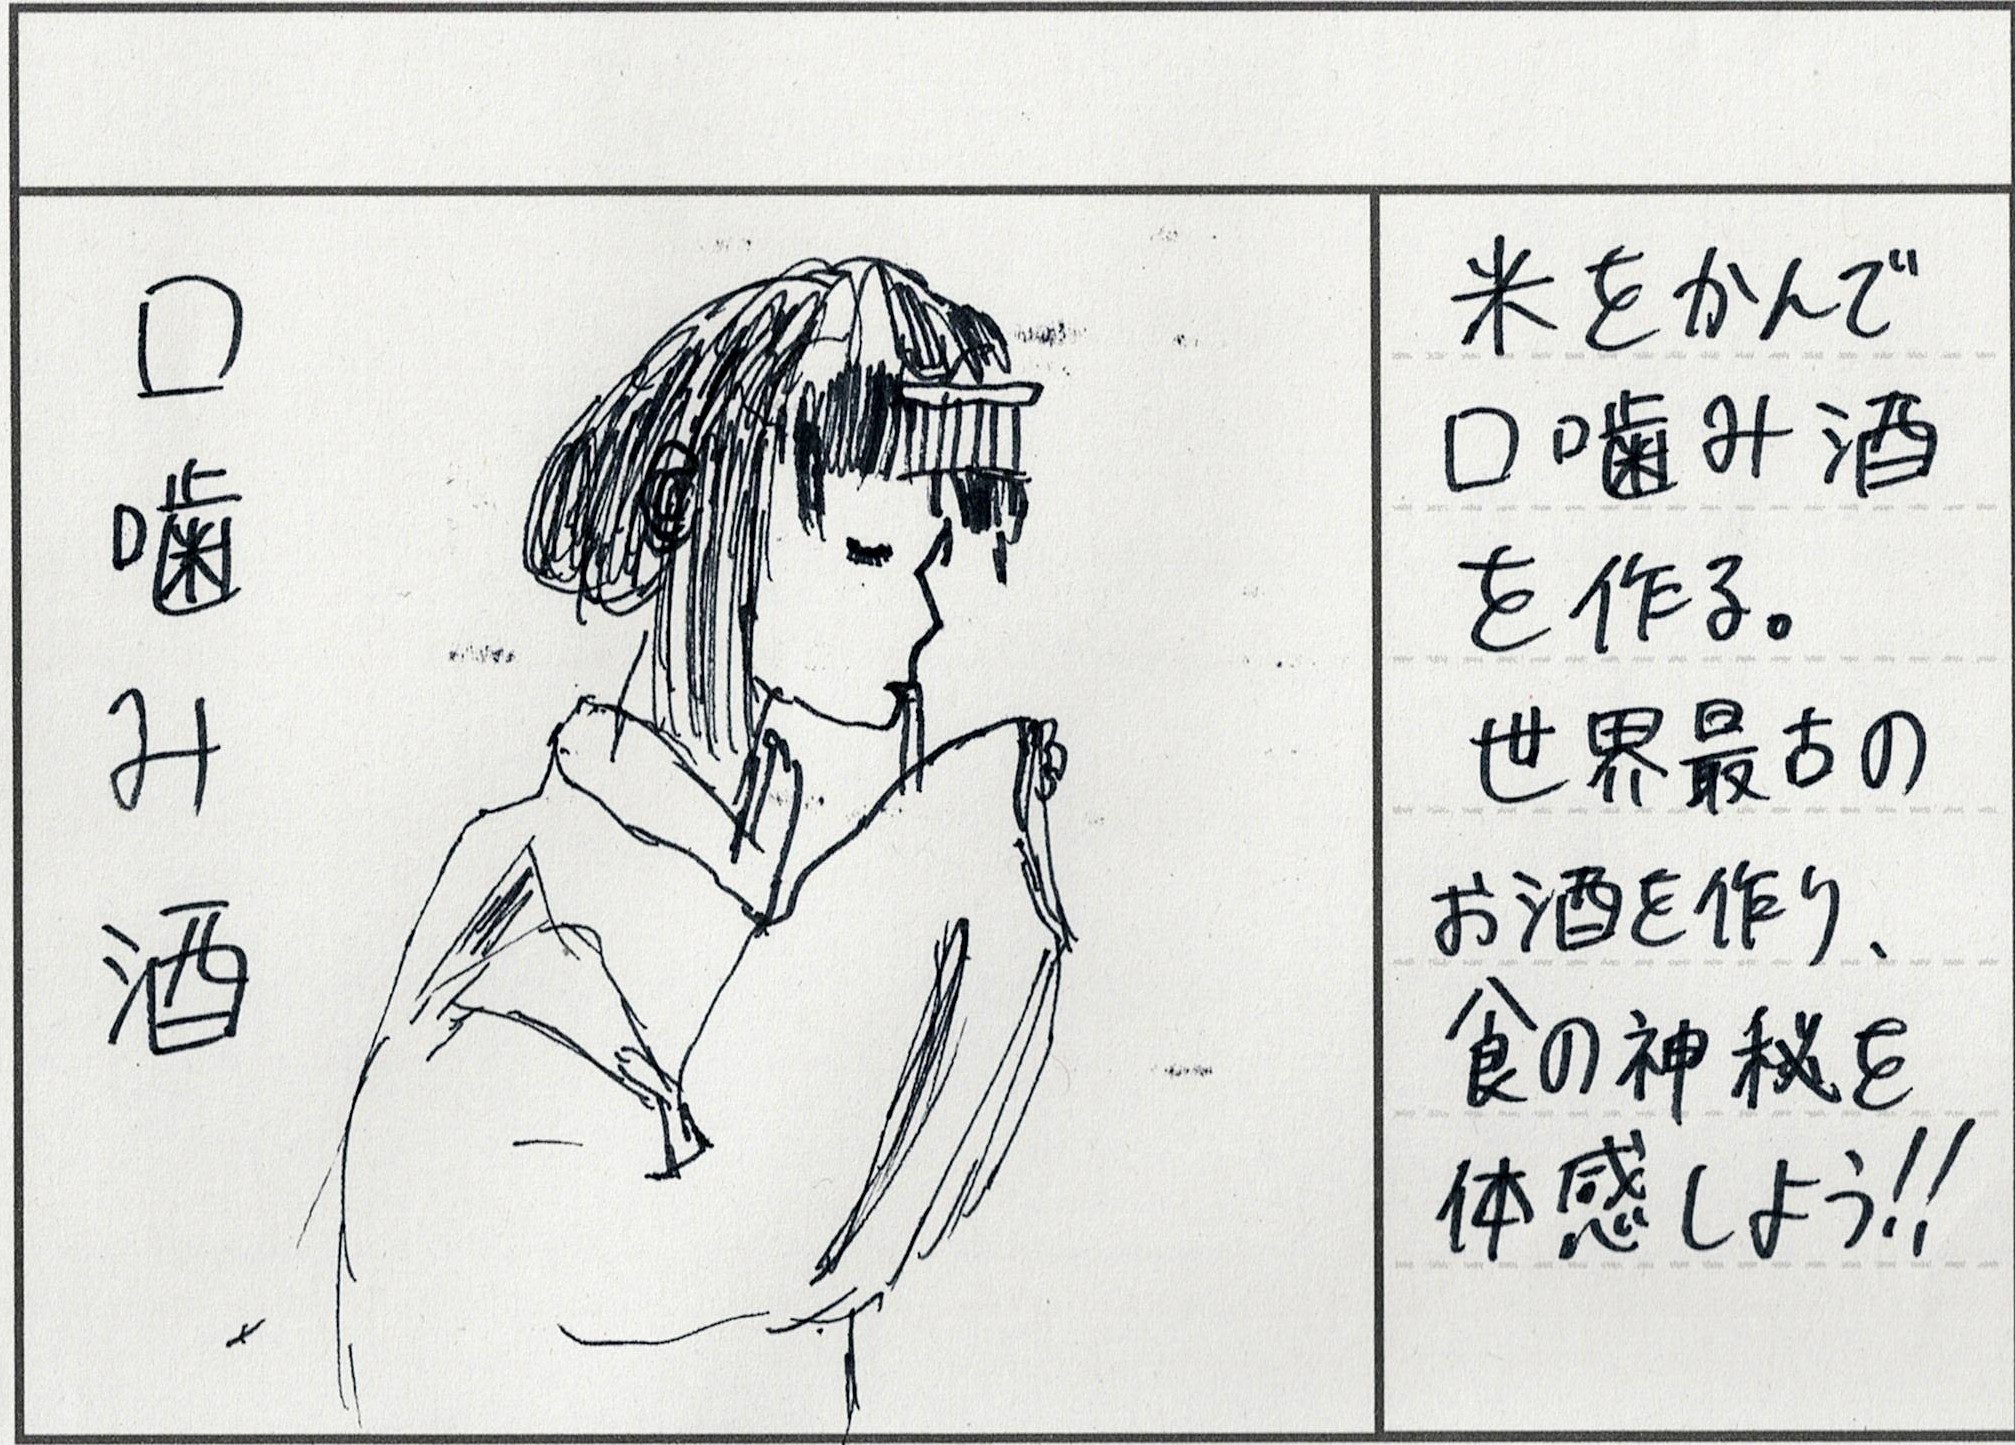 口噛み酒
米をかんで
口噛み酒
を作る。
世界最古の
お酒を作り、
食の神秘を
体感しよう!!